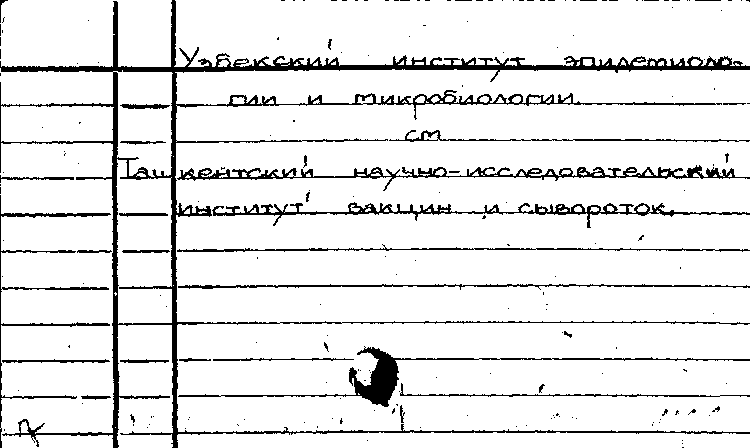 Узбекский институт эпидемиоло-
гии и микробиологии.
см
Ташкентский научно-исследовательский
институт вакцин и сывороток.